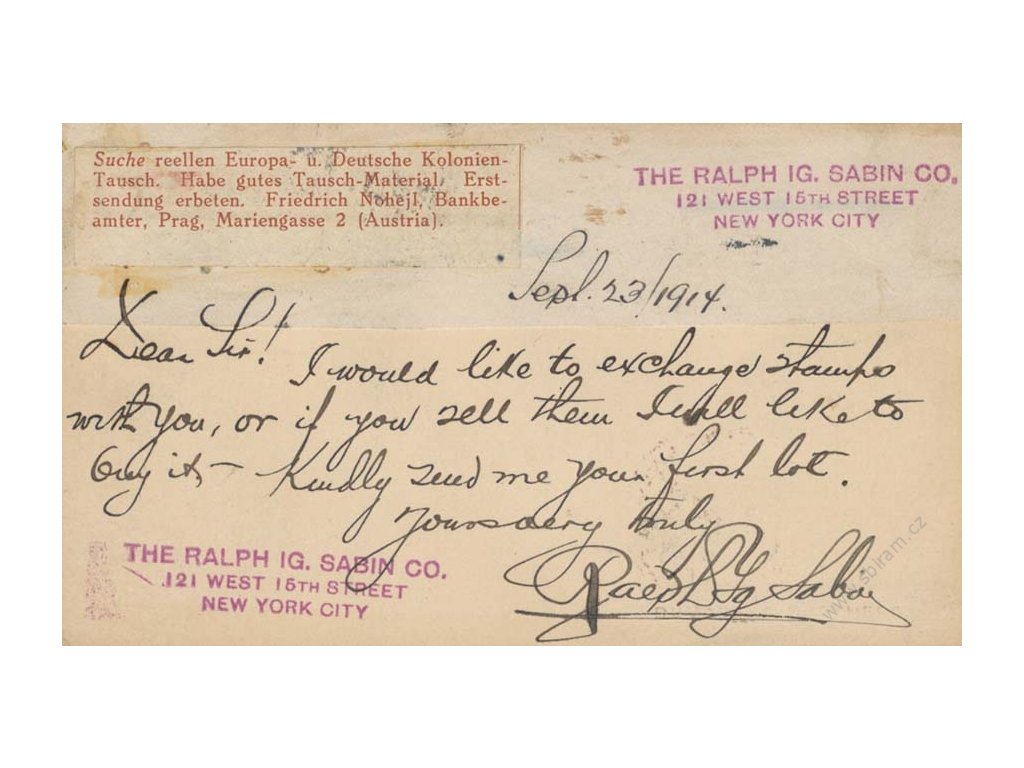 Suche reellen Europa- u. Deutsche Kolonien-
Tausch. Habe gutes Tausch-Material. Erst-
sendung erbeten. Friedrich Nohejl, Bankbe-
amter, Prag, Mariengasse 2 (Austria).
THE RALPH IG. SABIN CO.
121 WEST 15TH STREET
NEW YORK CITY
Sept. 23/1914.
Dear Sir!
I would like to exchange stamps
with you, or if you sell them I will like to
buy it, – Kindly send me your first lot.
Yours very truly
Ralph Ig Sabin
THE RALPH IG. SABIN CO.
121 WEST 15TH STREET
NEW YORK CITY
www.sbiram.cz